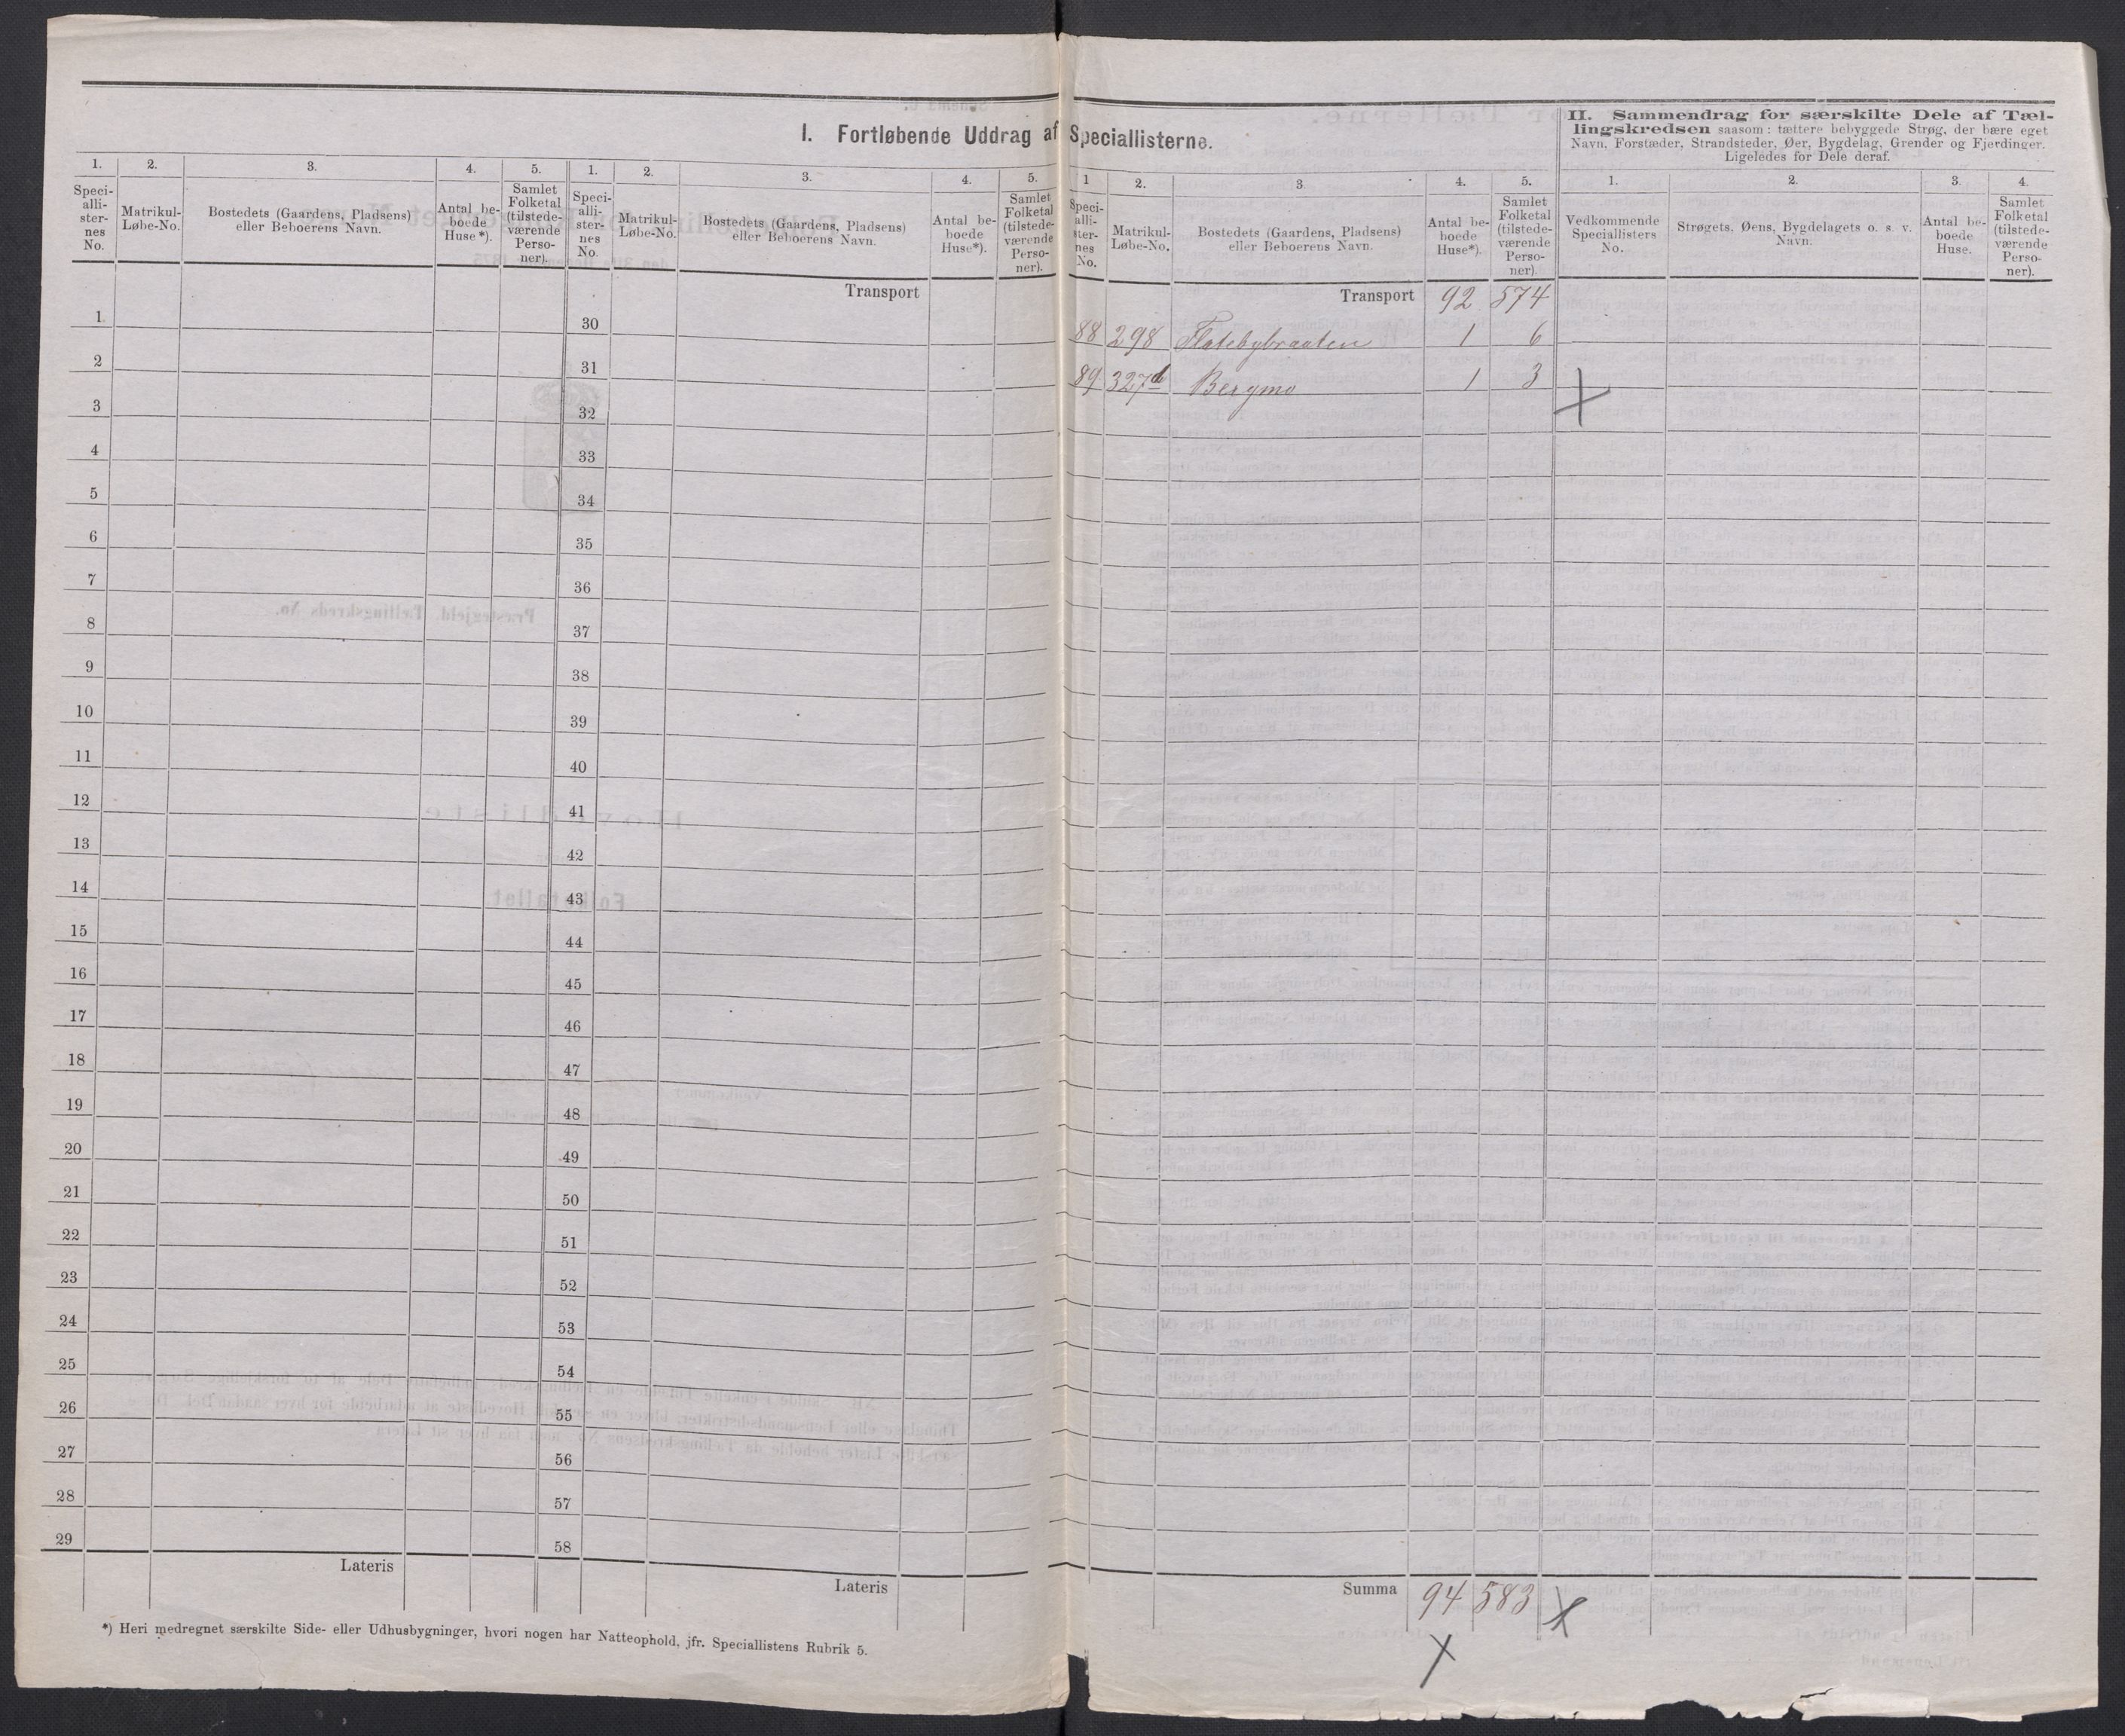 I. Fortløbende Uddrag af Speciallisterne.
II. Sammendrag for særskilte Dele af Tæl-
lingskredsen saasom: tættere bebyggede Strøg, der bære eget
Navn, Forstæder, Strandsteder, Øer, Bygdelag, Grender og Fjerdinger.
Ligeledes for Dele deraf.
1. 2. 3. 4. 5. 1. 2. 3. 4. 5.
Speci-
alli-
ster-
nes
No.
Matrikul-
Løbe-No.
Bostedets (Gaardens, Pladsens)
eller Beboerens Navn.
Antal be-
boede
Huse*).
Samlet
Folketal
(tilstede-
værende
Perso-
ner).
Speci-
alli-
ster-
nes
No.
Matrikul-
Løbe-No.
Bostedets (Gaardens, Pladsens)
eller Beboerens Navn.
Antal be-
boede
Huse*).
Samlet
Folketal
(tilstede-
værende
Perso-
ner).
Transport
1. 30
2 31
3 32
4 33
5 34
6 35
7 36
8 37
9 38
10 39
11 40
12 41
13 42
14 43
15 44
16 45
17 46
18 47
19 48
20 49
21 50
22 51
23 52
24 53
25 54
26 55
27 56
28 57
29 58
Lateris Lateris
*) Heri medregnet særskilte Side- eller Udhusbygninger, hvori nogen har Natteophold, jfr. Speciallistens Rubrik 5.
1 2. 3. 4. 5. 1. 2. 3. 4.
Speci-
alli-
ster-
nes
No.
Matrikul-
Løbe-No.
Bostedets (Gaardens, Pladsens)
eller Beboerens Navn.
Antal be-
boede
Huse*).
Samlet
Folketal
(tilstede-
værende
Perso-
ner).
Vedkommende
Speciallisters
No.
Strøgets, Øens, Bygdelagets o. s. v.
Navn.
Antal be-
boede
Huse.
Samlet
Folketal
(tilstede-
værende
Perso-
ner).
Transport 92 574
88 298 Flatebybraaten 1 6
89 327d Bergmo 1 3
Summa 94 583